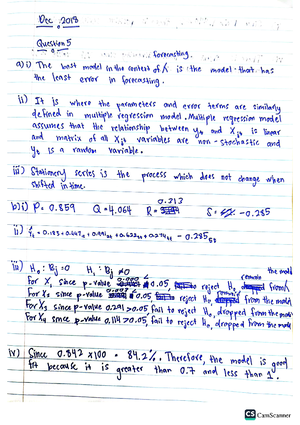 Dec 2018
Question 5
forecasting.
a) i) The best model in the context of is the model that has
the least error in forecasting.
ii) It is where the parameters and error terms are similarly
defined in multiple regression model. Multiple regression model
assumes that the relationship between yt and Xjt is linear
and matrix of all Xjt variables are non-stochastic and
yt is a random variable.
iii) Stationary series is the process which does not change when
shifted in time.
0.213
b) i) P = 0.859 Q = 4.064 R = S = -0.285
ii)
iii) H0 : Bj = 0 H1 : Bj ≠ 0
remain the model
For X1 since p-value 0.05, to reject H0, from
For X2 since p-value 0.05, to reject H0, from the model
For X3 since p-value 0.291 > 0.05, fail to reject H0, dropped from the model
For X4 since p-value 0.114 > 0.05, fail to reject H0, dropped from the model
iv) Since 0.842 x100 = 84.2%. Therefore, the model is good
fit because it is greater than 0.7 and less than 1.
CS CamScanner